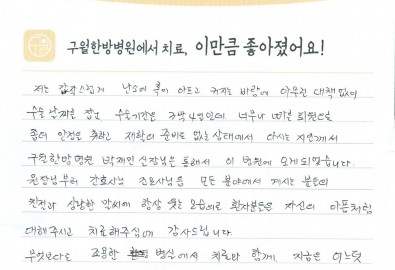 구월한방병원에서 치료, 이만큼 좋아졌어요!
저는 갑작스럽게 난소에 혹이 아프고 커지는 바람에 아무런 대책없이
수술 날짜를 잡고, 수술기간은 3박4일인데 너무나
좀더 안정을 취하고 준비도 없는 상태에서 아시는 지인께서
구월한방병원 통해서 이 병원에 오게되었습니다.
원장님부터 간호사님 모든 분야에서 계시는 분들의
친절과 상냥한 말씨에 항상 웃는 모습으로 환자분들을 자신의 아픔처럼
대해주시고 치료해주심에 감사드립니다.
무엇보다도 조용한 병실에서 치료와 함께 지금은 어느덧